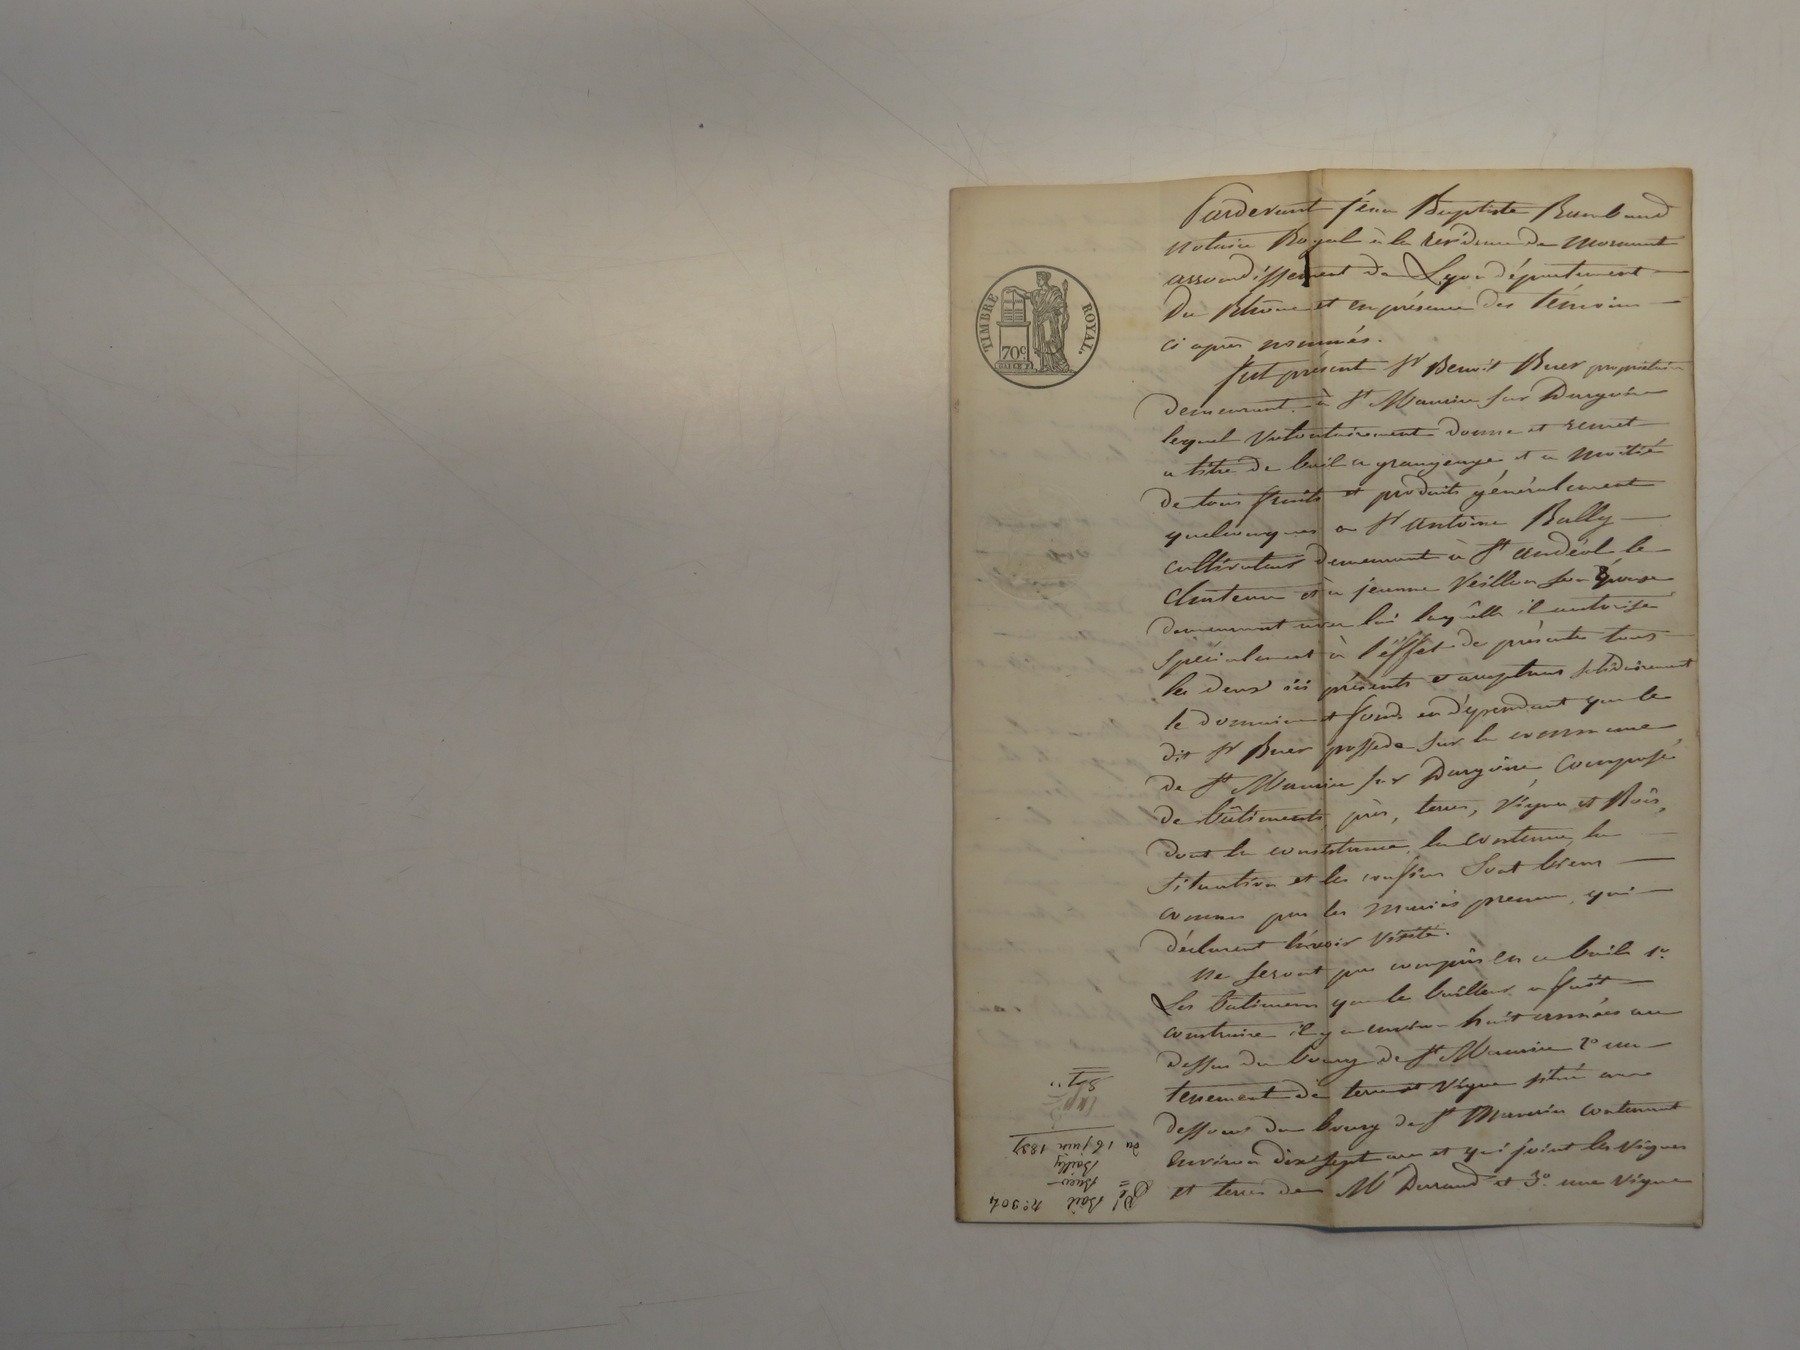 TIMBRE ROYAL.
70c
Pardevant Jean Baptiste Rambaud
notaire Royal à la résidence de Mornant
arrondissement de Lyon département
du Rhône et en présence des témoins
ci après nommés.
fut présent Sr Benoit Buer propriétaire
demeurant à St Maurice sur Dargoire
lequel volontairement donne et remet
a titre de bail a grangeage et a moitié
de tous fruits et produits généralement
quelconques au Sr Antoine Bally
cultivateur demeurant à St Andéol le
Chateau et à jeanne Veillon son épouse
demeurant avec lui laquelle il autorise
spécialement à l'éffet de présentes tous
les deux ici présents et acceptans solidairement
le domaine et fonds en dépendant que le
dit Sr Buer possede sur la commune
de St Maurice sur Dargoire, composé
de bâtiments, près, terres, vignes et Bois,
dont la consistance, la contenue, la
situation et les confins sont biens
connus par les mariés preneurs, qui
déclarent l'avoir visité.
ne seront pas compris en ce bail 1o
Les batimens que le bailleur a fait
construire il y a environ huit années au
dessus du bourg de St Maurice 2o un
tenement de terre et vigne situé au
dessous du bourg de St Maurice contenant
environ dix sept ares et qui joint les vignes
et terres de Mr Durand et 3o une vigne
No 304
Bail
Buer
Bailly
du 16 juin 1837